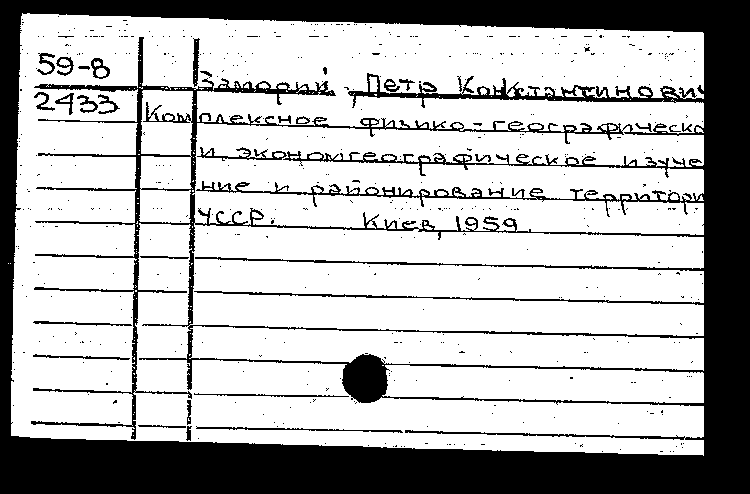 59-8
Заморий, Петр Константинович
2433
Комплексное физико-географическо
и экономгеографическое изуче
ние и районирование территори
УССР. Киев, 1959.